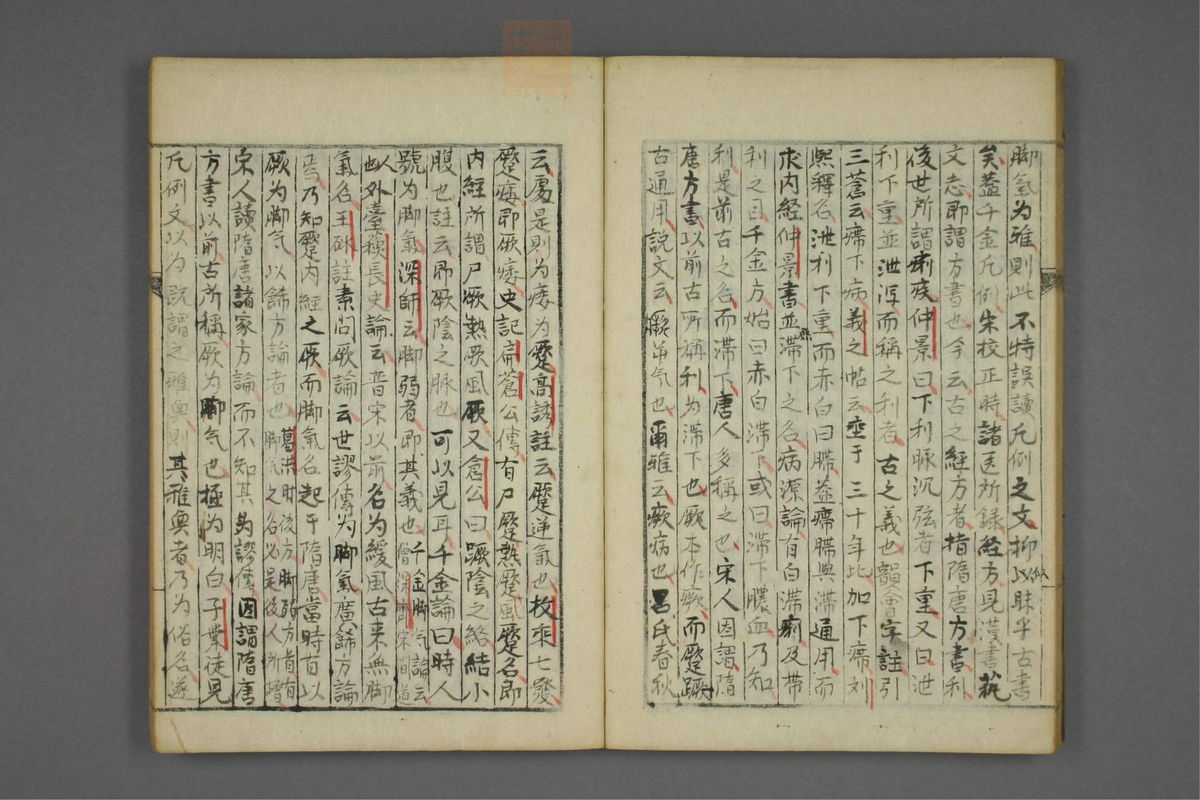 脚氣為雅則此不特誤讀凡例之文抑似昧乎古書
矣蓋千金凡例朱校正時諸医所録経方見漢書藝
文志即謂方書也今云古之経方者指隋唐方書利
後世所謂痢疾仲景曰下利脉沉弦者下重又曰泄
利下重並泄淳而稱之利者古之義也韻會字註引
三蒼云㿃下病義之帖云塋于三十年此加下㿃刘
熙釋名泄利下重而赤白曰䐭蓋㿃䐭與滞通用而
求内経仲景書並無滞下之名病源論有白滞痢及带
利之目千金方始曰赤白滞下或曰滞下膿血乃知
利是前古之名而滞下唐人多稱之也宋人因謂隋
唐方書以前古所稱利為滞下也厥本作瘚而蹷蹶
古通用說文云瘚屰气也爾雅云瘚病也呂氏春秋
云處是則为痿为蹷高誘註云蹷逆氣也枚乘七發
蹷痿即厥痿史記扁蒼公傳有尸蹷熱蹷風蹷名即
内経所謂尸厥熱厥風厥又倉公曰蹶陰之絡結小
腹也註云即厥陰之脉也可以見耳千金論曰時人
號為脚氣深師云脚弱者即其義也千金脚气論云僧深齊宋間道
人也外臺穐長史論云晋宋以前名为緩風古来無脚
氣名王砅註素问厥論云世謬傳为脚氣廣餙方論
焉乃知蹷内経之厥而脚氣名起于隋唐當時首以
厥为脚气以餙方論者也葛洪肘後方脚弱方首有脚气之名必是後人所增
宋人讀隋唐諸家方論而不知其为謬傳因謂隋唐
方書以前古所稱厥为脚气也極为明白子業徒見
凡例文以为説謂之雅奥則其雅奥者乃为俗名遂